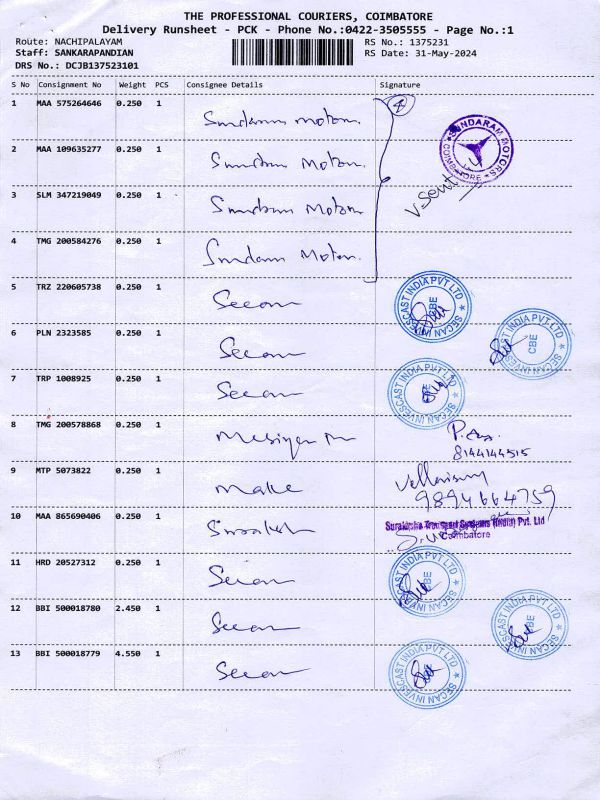 THE PROFESSIONAL COURIERS, COIMBATORE
Delivery Runsheet - PCK - Phone No.:0422-3505555 - Page No.:1
Route: NACHIPALAYAM RS No.: 1375231
Staff: SANKARAPANDIAN RS Date: 31-May-2024
DRS No.: DCJB137523101
S No Consignment No Weight PCS Consignee Details Signature
1 MAA 575264646 0.250 1 Sundaram Motors 4
SUNDARAM MOTORS
COIMBATORE
2 MAA 109635277 0.250 1 Sundaram Motors
3 SLM 347219049 0.250 1 Sundaram Motors
4 TMG 200584276 0.250 1 Sundaram Motors
5 TRZ 220605738 0.250 1 Secan
SECAN INVESCAST INDIA PVT LTD
CBE
6 PLN 2323585 0.250 1 Secan
SECAN INVESCAST INDIA PVT LTD
CBE
7 TRP 1008925 0.250 1 Secan
SECAN INVESCAST INDIA PVT LTD
CBE
8 TMG 200578868 0.250 1
8144144515
9 MTP 5073822 0.250 1 make
9894664759
10 MAA 865690406 0.250 1
Transport Systems (India) Pvt. Ltd
Coimbatore
11 HRD 20527312 0.250 1 Secan
SECAN INVESCAST INDIA PVT LTD
CBE
12 BBI 500018780 2.450 1 Secan
SECAN INVESCAST INDIA PVT LTD
CBE
13 BBI 500018779 4.550 1 Secan
SECAN INVESCAST INDIA PVT LTD